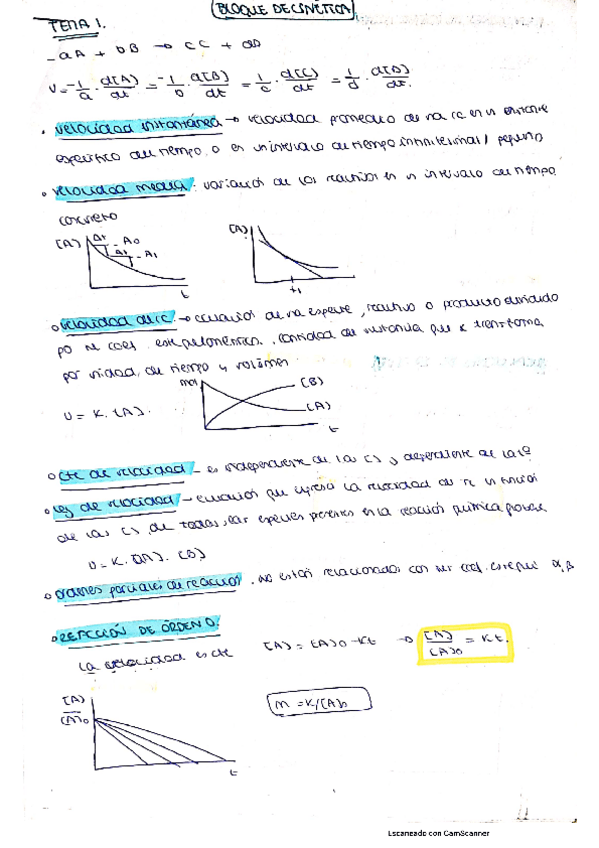 BLOQUE DE CINÉTICA
TEMA 1.
-aA + bB → cC + dD
v = -1/a · d[A]/dt = -1/b · d[B]/dt = 1/c · d[C]/dt = 1/d · d[D]/dt.
• velocidad instantánea → velocidad promedio de na rc en un instante
específico del tiempo, o en un intervalo de tiempo infinitesimal / pequeño
• velocidad media: variación de los reactivos en un intervalo de tiempo
concreto
[A] Δt - A0
Δt - A1
t
[A]
t1
• velocidad de rc. → ecuación de na especie, reactivo o producto dividido
por su coef. estequiométrico. cantidad de sustancia que se transforma
por unidad de tiempo y volúmen
mol
[B]
[A]
t
v = K. [A].
• cte de velocidad - es independiente de las [ ] y dependiente de la tº
• Ley de velocidad - ecuación que expresa la velocidad de rc en función
de las [ ] de todas las especies presentes en la reacción química
v = K. [A]. [B]
• ordenes parciales de reacción. No están relacionados con sus coef. estequi α, β
• REACCIÓN DE ÓRDEN 0.
La velocidad es cte
[A] = [A]0 - Kt → [A]/[A]0 = Kt.
m = K/[A]0
[A]/[A]0
t
Escaneado con CamScanner